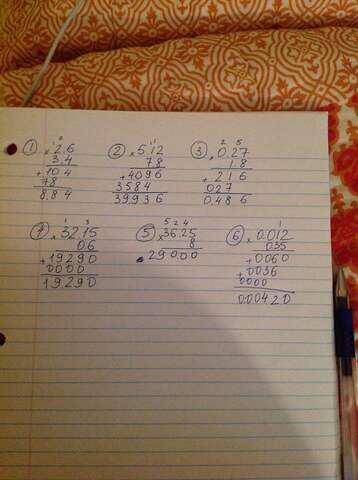 1 2
① × 2.6
3.4
+ 104
78
8.84
1 1
② × 5.12
78
+ 4096
3584
399.36
2 5
③ × 0.27
1.8
+ 216
027
0.486
1 3
④ × 32.15
0.6
+ 19290
0000
19.290
5 2 4
⑤ × 36.25
8
290.00
1
⑥ × 0.012
0.35
+ 0060
0036
0000
0.00420